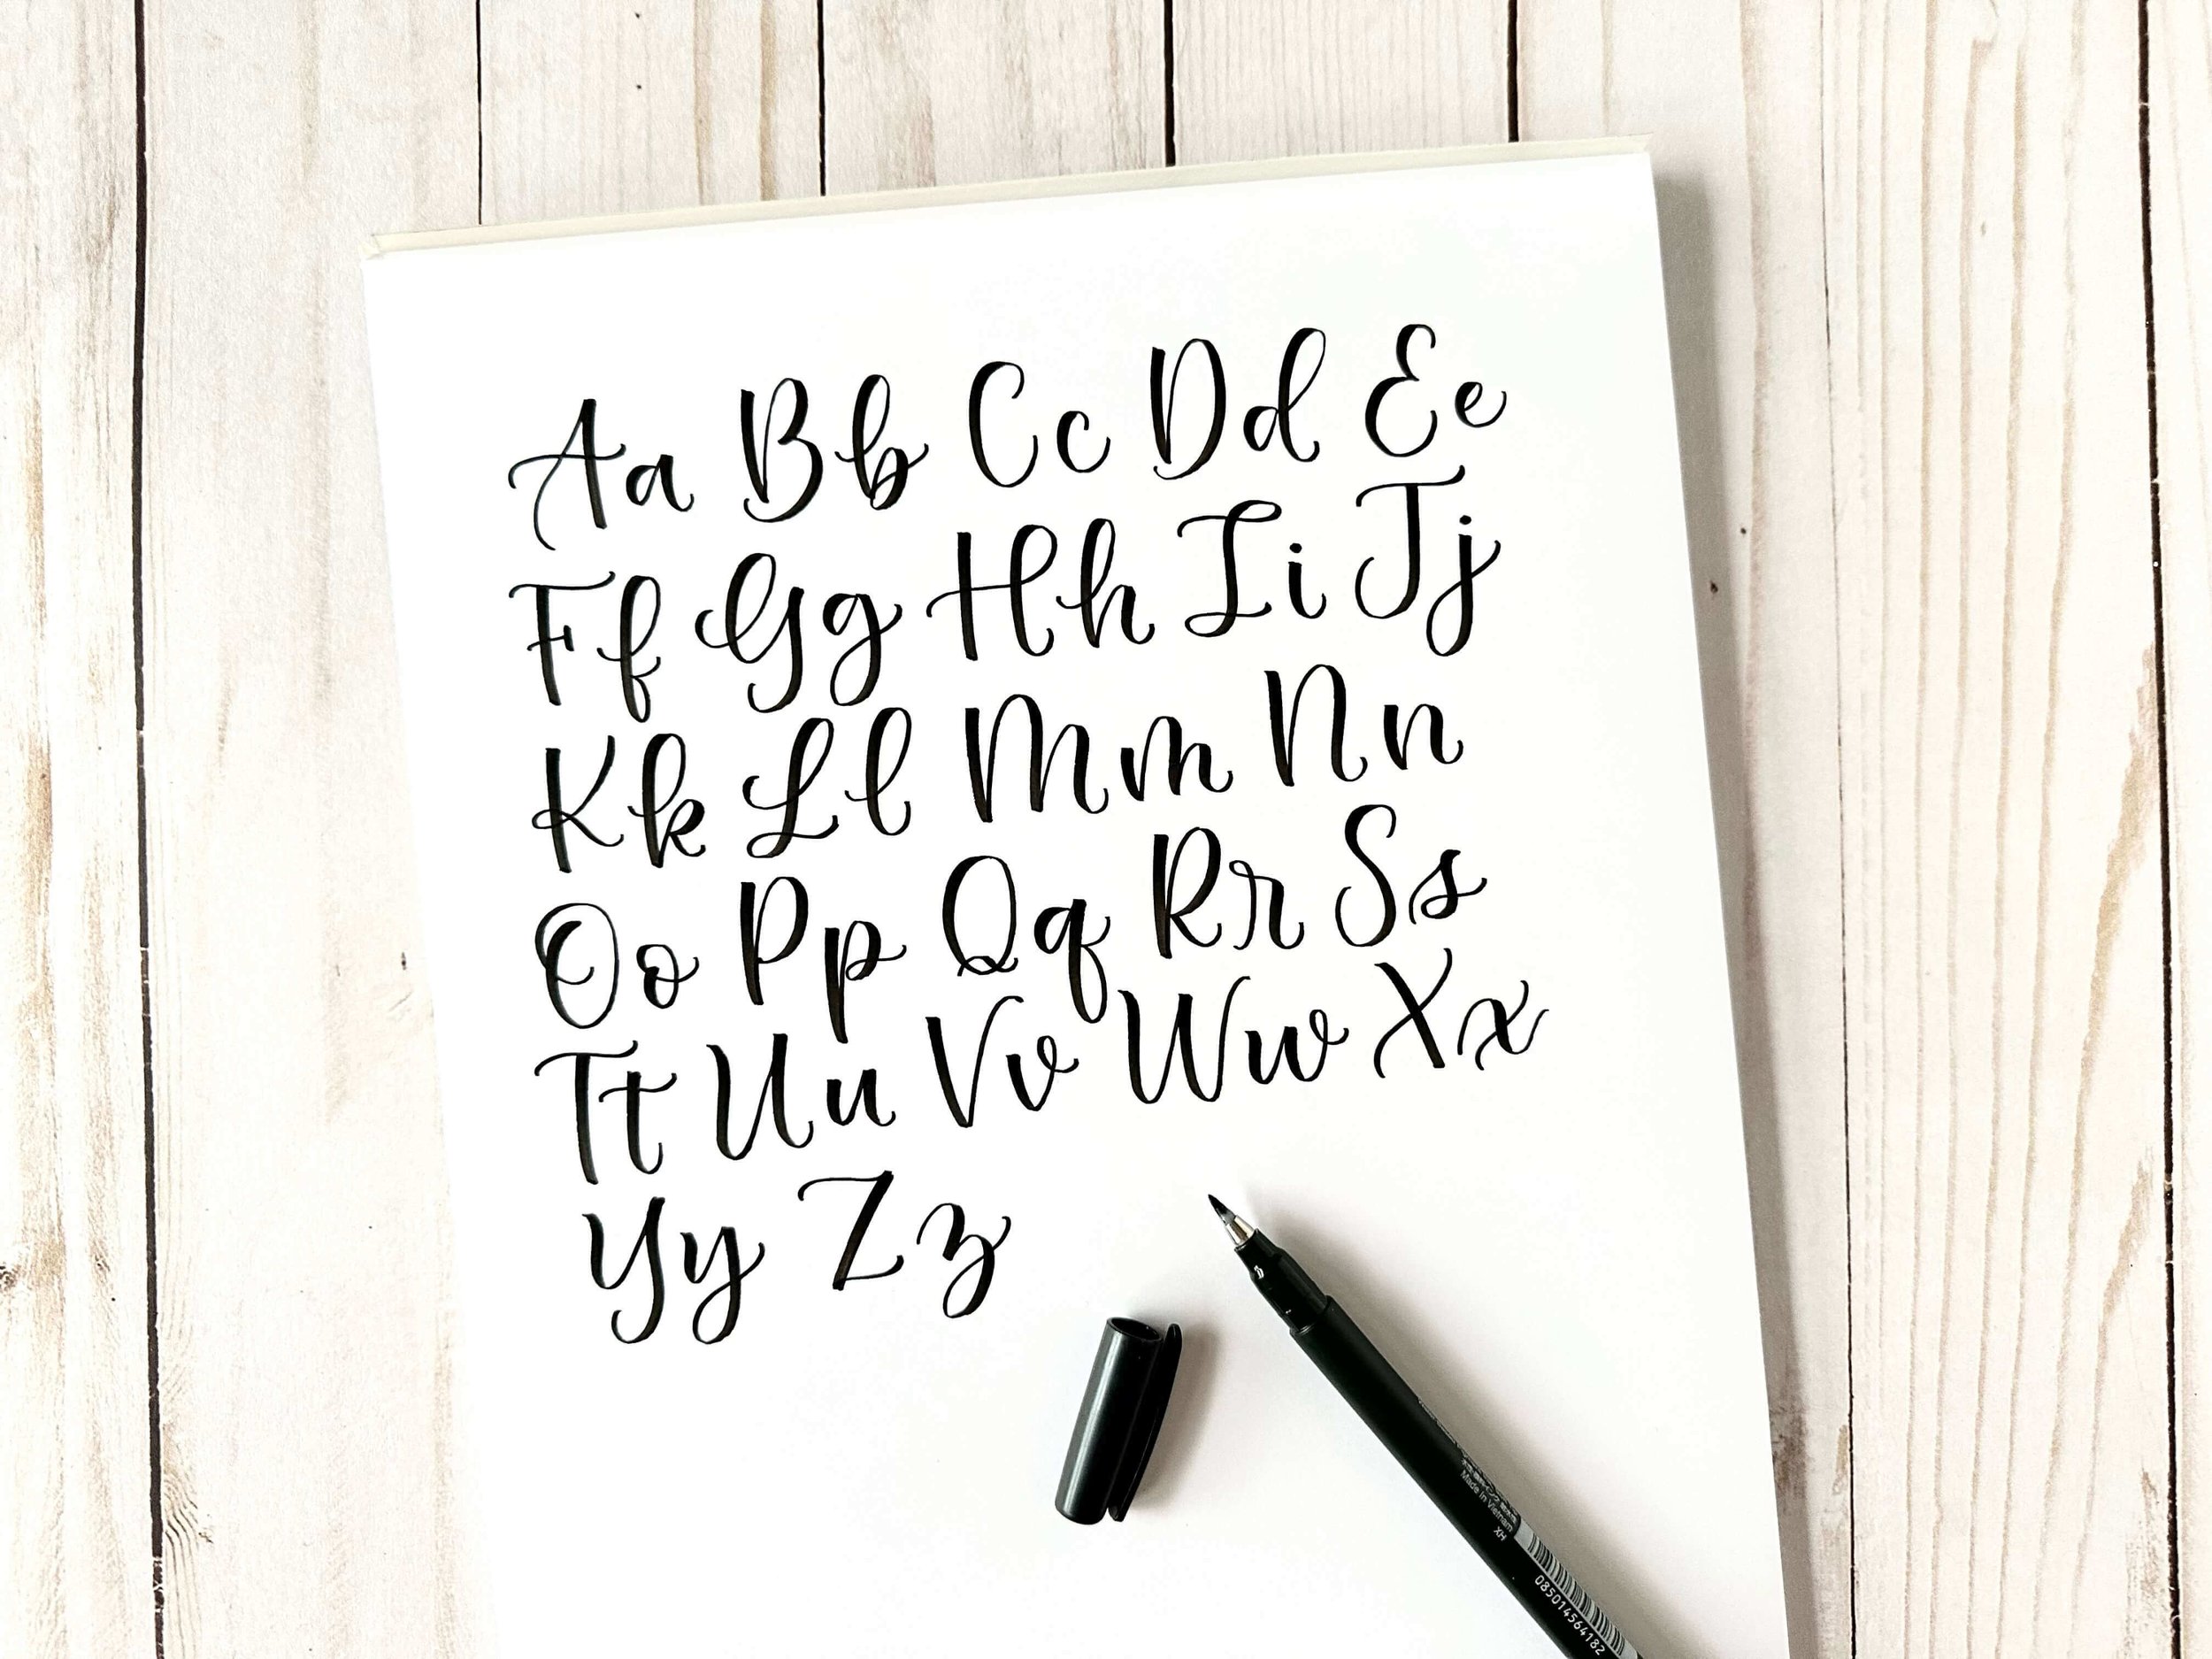 Aa Bb Cc Dd Ee
Ff Gg Hh Ii Jj
Kk Ll Mm Nn
Oo Pp Qq Rr Ss
Tt Uu Vv Ww Xx
Yy Zz
Made in Vietnam XH
085014564182